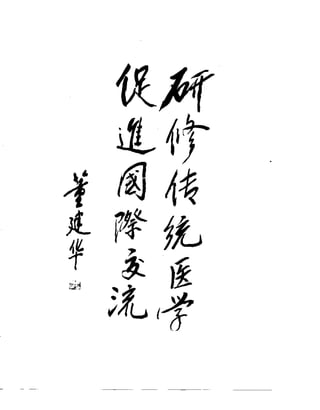 研修传统医学
促進國際交流
董建华